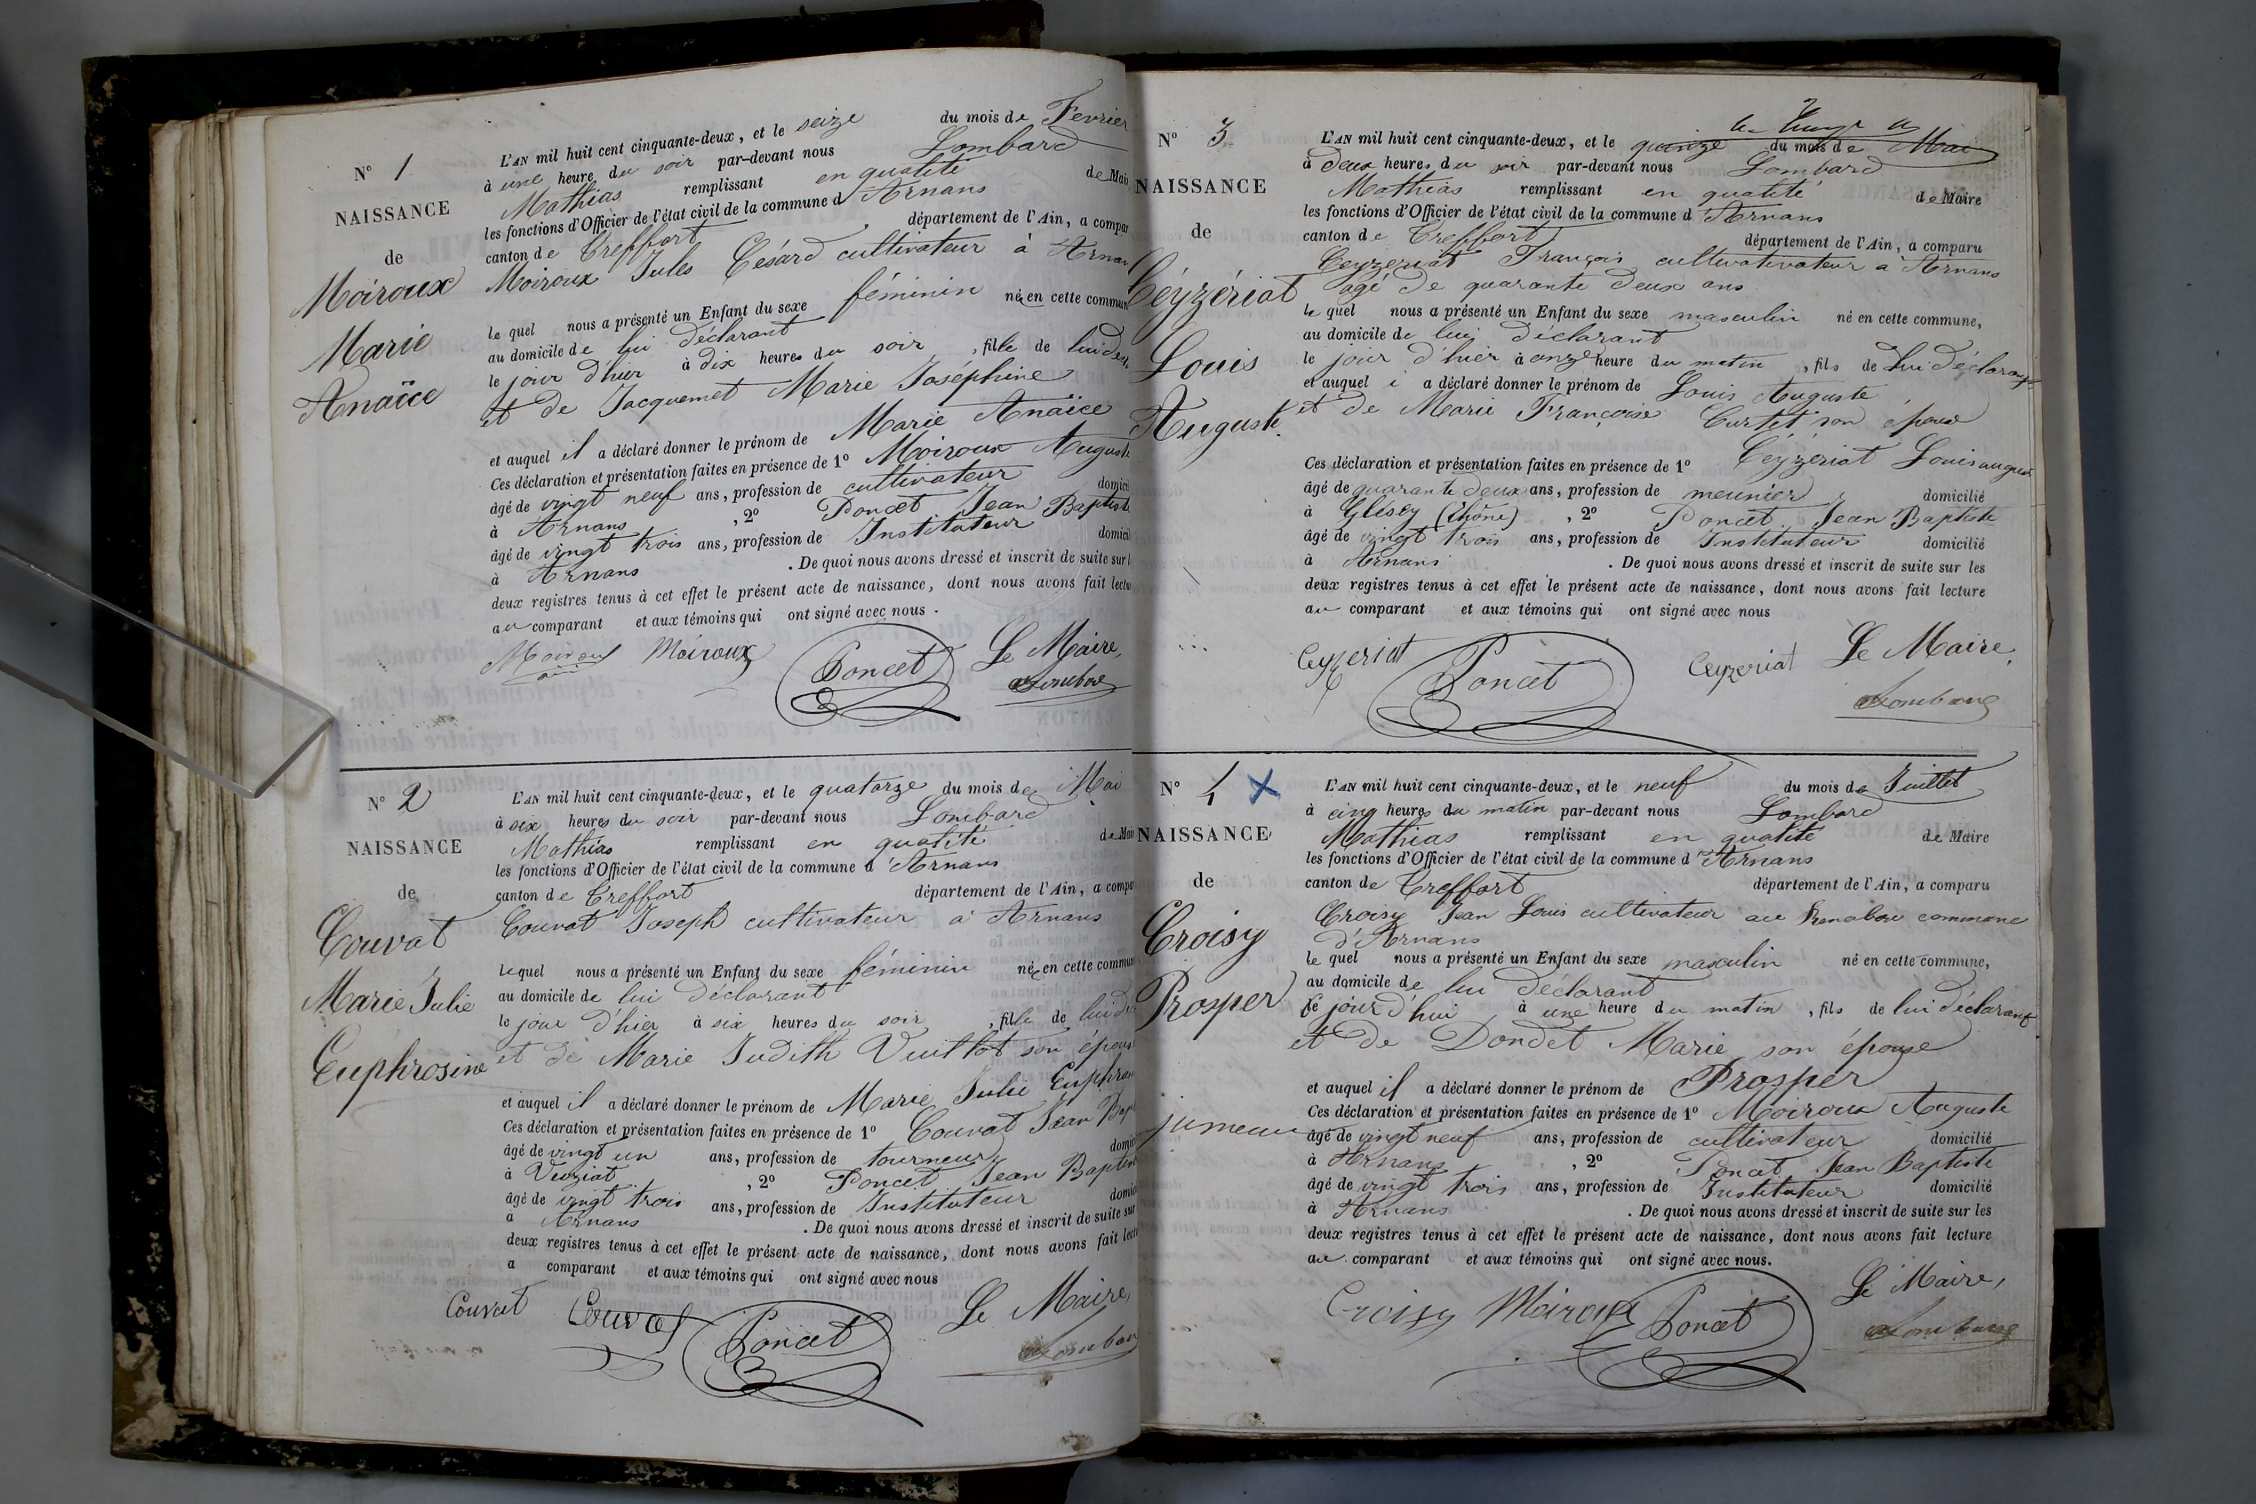 N° 1
NAISSANCE
de
Moiroux
Marie
Anaïce
L'AN mil huit cent cinquante-deux, et le seize du mois de Fevrier
à une heure du soir par-devant nous Lombard
Mathias remplissant en qualité de Mair
les fonctions d'Officier de l'état civil de la commune d'Arnans
canton de Treffort département de l'Ain, a compar
Moiroux Jules Césard cultivateur à Arnan
le quel nous a présenté un Enfant du sexe féminin née en cette commun
au domicile de lui déclarant
le jour d'hier à dix heures du soir, fille de lui
et de Jacquemet Marie Josephine
et auquel il a déclaré donner le prénom de Marie Anaïce
Ces déclaration et présentation faites en présence de 1° Moiroux August
âgé de vingt neuf ans, profession de cultivateur domici
à Arnans, 2° Poncet Jean Baptiste
âgé de vingt trois ans, profession de Instituteur domicil
à Arnans. De quoi nous avons dressé et inscrit de suite sur l
deux registres tenus à cet effet le présent acte de naissance, dont nous avons fait lectu
au comparant et aux témoins qui ont signé avec nous.
Moiroux Moiroux Poncet Le Maire,
Lombard
N° 2
NAISSANCE
de
Couvat
Marie Julie
Euphrosine
L'AN mil huit cent cinquante-deux, et le quatorze du mois de Mai
à six heures du soir par-devant nous Lombard
Mathias remplissant en qualité de Mair
les fonctions d'Officier de l'état civil de la commune d'Arnans
canton de Treffort département de l'Ain, a compa
Couvat Joseph cultivateur à Arnans
lequel nous a présenté un Enfant du sexe féminin née en cette commun
au domicile de lui déclarant
le jour d'hier à six heures du soir, fille de lui
et de Marie Judith Vuillot son épous
et auquel il a déclaré donner le prénom de Marie Julie Euphros
Ces déclaration et présentation faites en présence de 1° Couvat Jean Bapt
âgé de vingt un ans, profession de tourneur domici
à, 2° Poncet Jean Baptiste
âgé de vingt trois ans, profession de Instituteur domici
à Arnans. De quoi nous avons dressé et inscrit de suite sur
deux registres tenus à cet effet le présent acte de naissance, dont nous avons fait lectu
a comparant et aux témoins qui ont signé avec nous
Couvat Couvat Poncet Le Maire,
Lombard
N° 3
NAISSANCE
de
Céyzériat
Louis
Auguste
L'AN mil huit cent cinquante-deux, et le quinze du mois de Mai
à deux heures du soir par-devant nous Lombard
Mathias remplissant en qualité de Maire
les fonctions d'Officier de l'état civil de la commune d'Arnans
canton de Treffort département de l'Ain, a comparu
Ceyzeriat François cultivativateur à Arnans
agé de quarante deux ans
le quel nous a présenté un Enfant du sexe masculin né en cette commune,
au domicile de lui déclarant
le jour d'hier à onze heure du matin, fils de lui déclarant
et auquel i a déclaré donner le prénom de Louis Auguste
et de Marie Françoise Curtet son épouse
Ces déclaration et présentation faites en présence de 1° Céyzériat Louis auguste
âgé de quarante deux ans, profession de meunier domicilié
à (Rhône), 2° Poncet Jean Baptiste
âgé de vingt trois ans, profession de Instituteur domicilié
à Arnans. De quoi nous avons dressé et inscrit de suite sur les
deux registres tenus à cet effet le présent acte de naissance, dont nous avons fait lecture
au comparant et aux témoins qui ont signé avec nous
Ceyzeriat Poncet Ceyzeriat Le Maire,
Lombard
N° 4
NAISSANCE
de
Croisy
Prosper
jumeau
L'AN mil huit cent cinquante-deux, et le neuf du mois de Juillet
à cinq heures du matin par-devant nous Lombard
Mathias remplissant en qualité de Maire
les fonctions d'Officier de l'état civil de la commune d'Arnans
canton de Treffort département de l'Ain, a comparu
Croisy Jean Louis cultivateur au commune
d'Arnans
le quel nous a présenté un Enfant du sexe masculin né en cette commune,
au domicile de lui déclarant
le jour d'hui à une heure du matin, fils de lui déclarant
et de Dondet Marie son épouse
et auquel il a déclaré donner le prénom de Prosper
Ces déclaration et présentation faites en présence de 1° Moiroux Auguste
âgé de vingt neuf ans, profession de cultivateur domicilié
à Arnans, 2° Poncet Jean Baptiste
âgé de vingt trois ans, profession de Instituteur domicilié
à Arnans. De quoi nous avons dressé et inscrit de suite sur les
deux registres tenus à cet effet le présent acte de naissance, dont nous avons fait lecture
au comparant et aux témoins qui ont signé avec nous.
Croisy Moiroux Poncet Le Maire,
Lombard